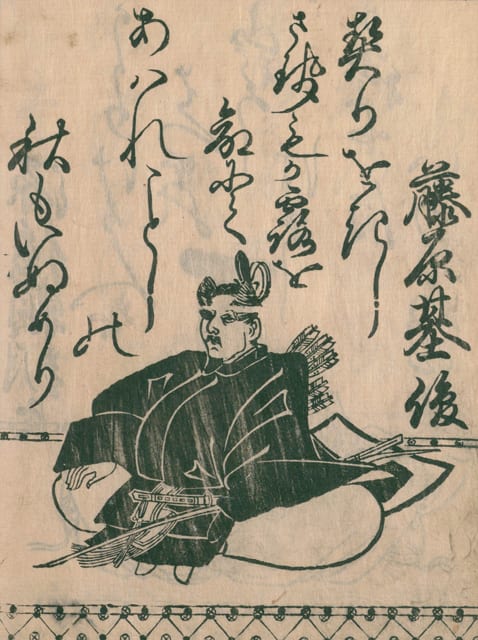 藤原基俊
契りをきし
させもか露を
命にて
あハれことし
の
秋もいぬめり